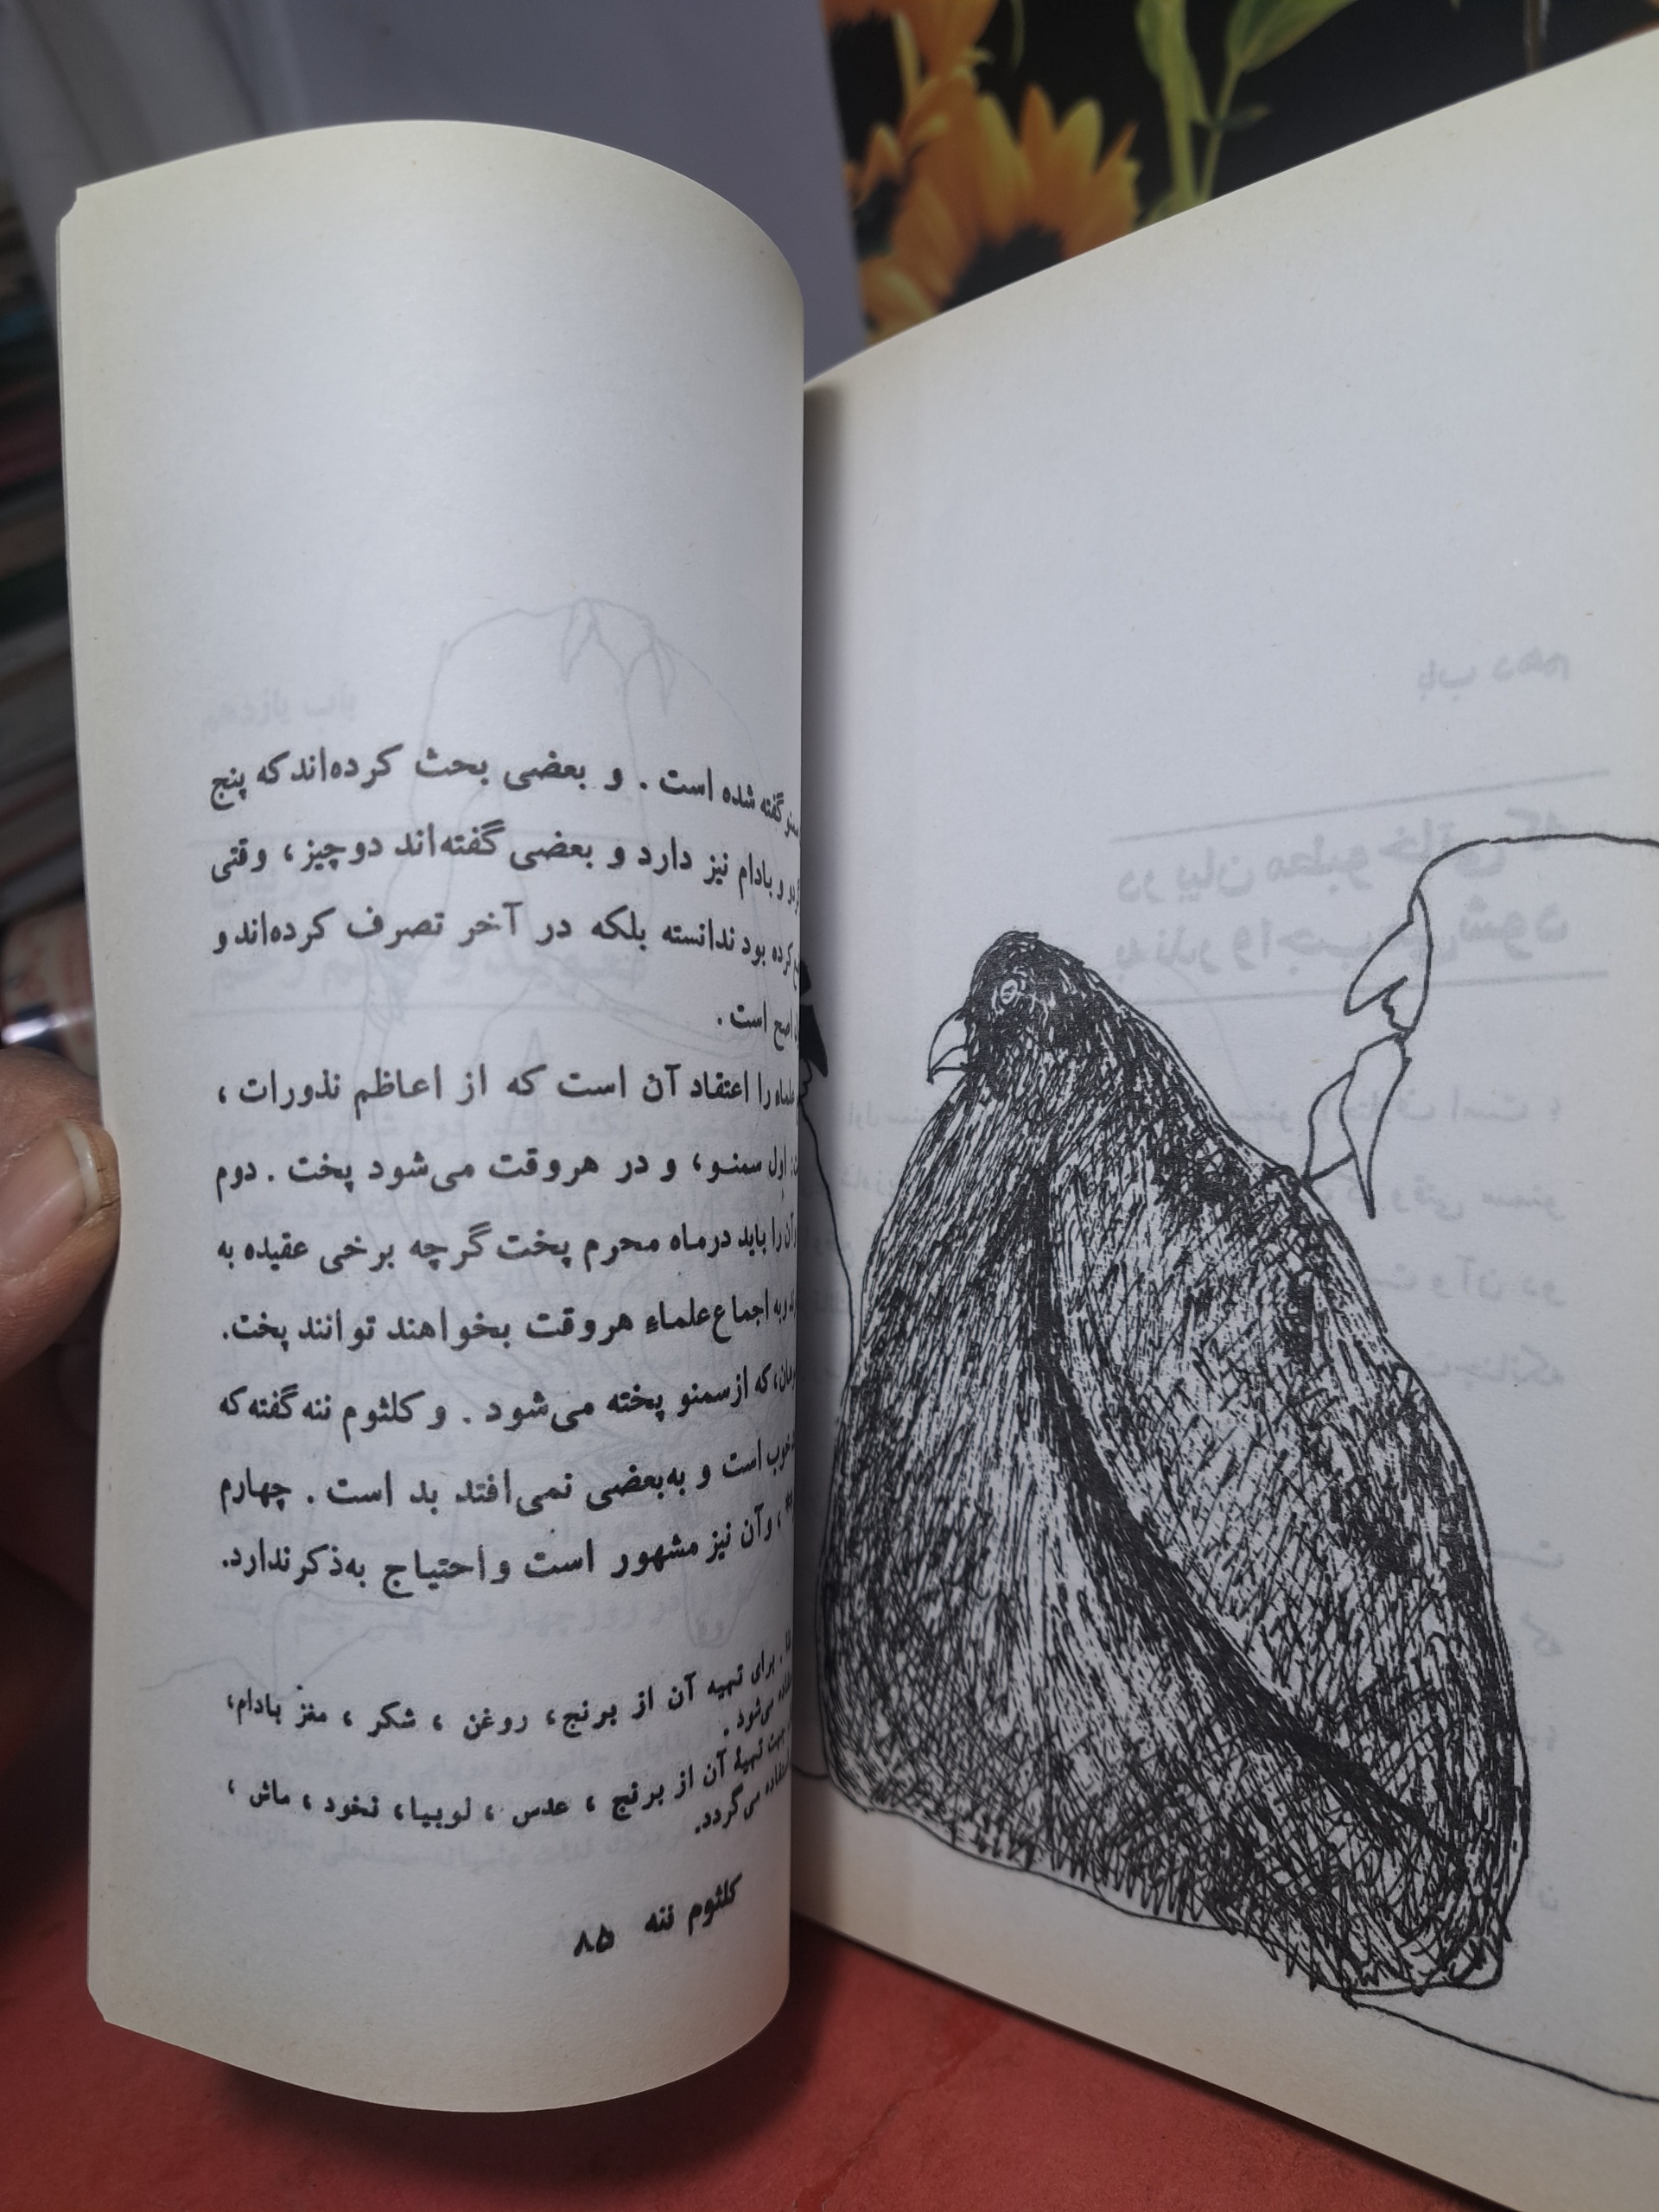 گفته شده است . و بعضی بحث کرده‌اند که پنج
و بادام نیز دارد و بعضی گفته‌اند دوچیز، وقتی
کرده بود ندانسته بلکه در آخر تصرف کرده‌اند و
اصح است .
علماء را اعتقاد آن است که از اعاظم نذورات ،
اول سمنو، و در هروقت می‌شود پخت . دوم
آن را باید درماه محرم پخت گرچه برخی عقیده به
وبه اجماع علماء هروقت بخواهند توانند پخت.
که ازسمنو پخته می‌شود . و کلثوم ننه گفته که
خوب است و به‌بعضی نمی‌افتد بد است . چهارم
، وآن نیز مشهور است و احتیاج به‌ذکر ندارد.
برای تهیه آن از برنج، روغن ، شکر ، مغز بادام،
می‌شود .
جهت تهیهٔ آن از برنج ، عدس ، لوبیا، نخود ، ماش ،
می‌گردد.
کلثوم ننه ۸۵